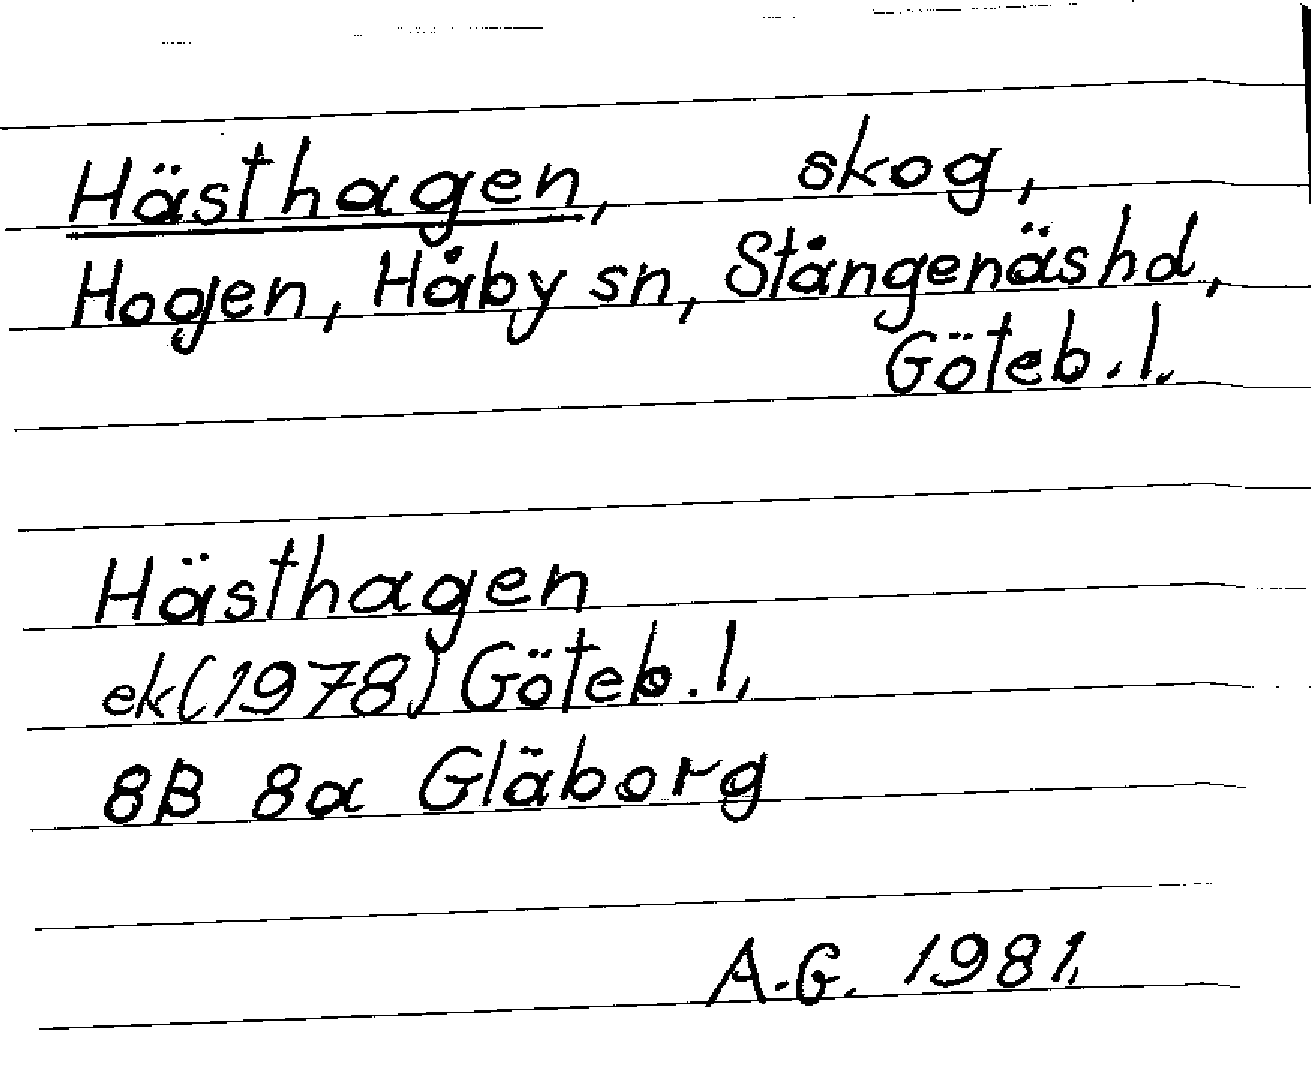 Hästhagen, skog,
Hogen, Håby sn, Stångenäs hd,
Göteb. l.
Hästhagen
ek (1978) Göteb. l,
8B 8a Gläborg
A.G. 1981.